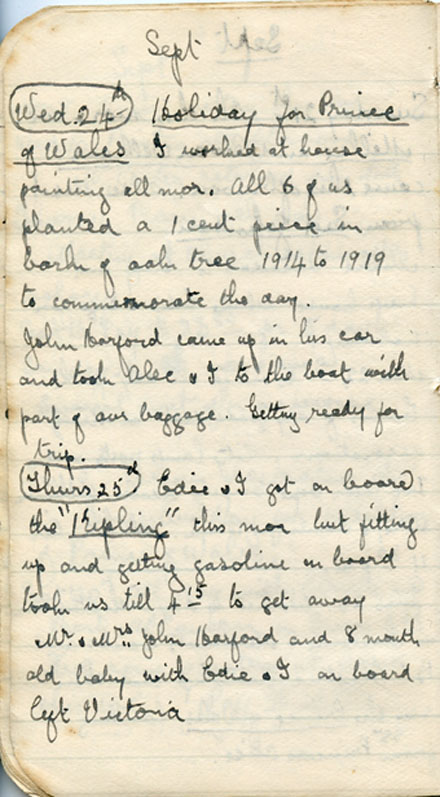 Sept
Wed. 24th Holiday for Prince
of Wales I worked at house
painting all mor. All 6 of us
planted a 1 cent piece in
bark of oak tree 1914 to 1919
to commemorate the day.
John Harford came up in his car
and took Alec & I to the boat with
part of our baggage. Getting ready for
trip.
Thurs 25th Edie & I got on board
the "Kipling" this mor but fitting
up and getting gasoline on board
took us till 4 15 to get away
Mr. & Mrs. John Harford and 8 month
old baby with Edie & I on board
left Victoria